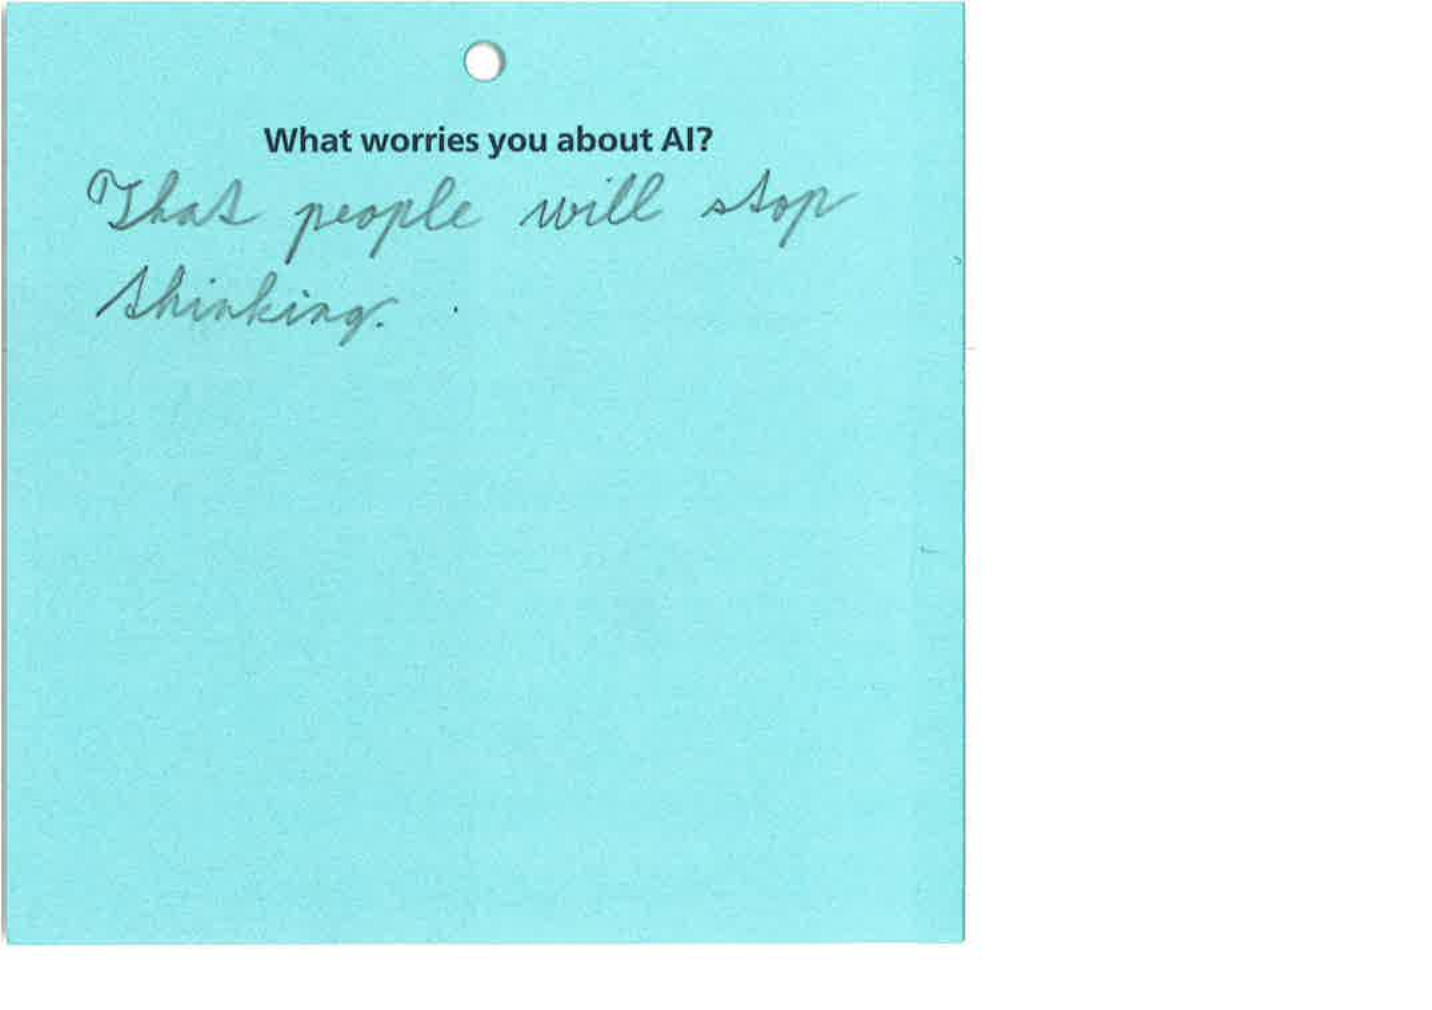 What worries you about AI?
That people will stop
thinking.